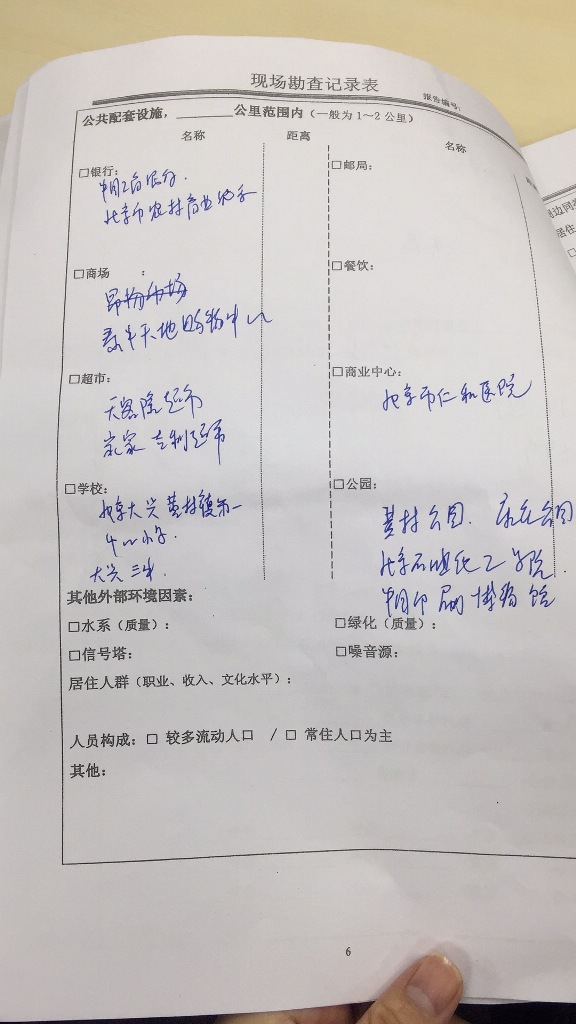 现场勘查记录表
报告编号:
公共配套设施,______公里范围内(一般为1~2公里)
名称 距离 名称
□银行: □邮局:
中国工商银行.
北京市农村商业
□商场 : □餐饮:
天地购物中心
□超市: □商业中心:
天客隆超市
北京市仁和医院
吉利超市
□学校: □公园:
北京大兴黄村镇第一
中心小学.
黄村公园. 康庄公园
北京石油化工学院.
大兴三中
中国印刷博物馆
其他外部环境因素:
□水系(质量): □绿化(质量):
□信号塔: □噪音源:
居住人群(职业、收入、文化水平):
人员构成: □ 较多流动人口 / □ 常住人口为主
其他:
6